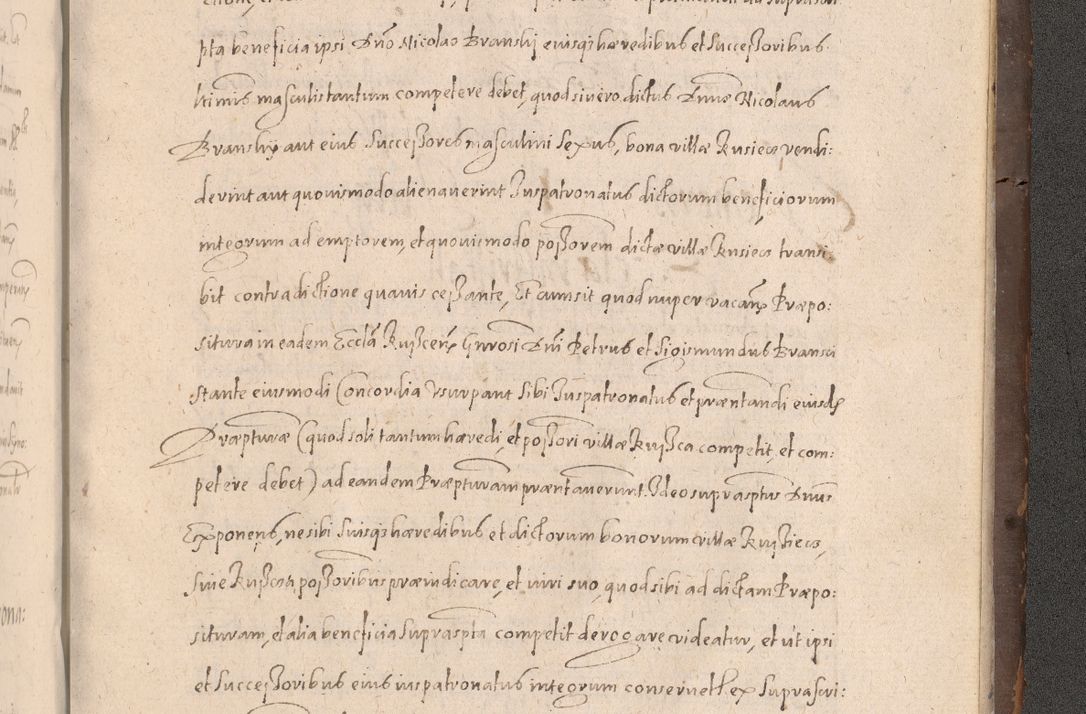 pta beneficia ipsi Dno Nicolao Branskij eiusq3 hæredibus et Successoribus
ltimis masculis tantum competere debet, quod si vero dictus Dnus Nicolaus
Branskij aut eius Successores masculini Sexus, bona villæ Rusieca vendi:
derint aut quouismodo alienauerint Juspatronatus dictorum beneficiorum
integrum ad emptorem, et quouismodo possorem dictæ villæ Rusieca transi:
bit contradictione quauis cessante, Et cum sit quod nuper vacan Præpo:
situra in eadem Eccla Ruscen Gnrosi Dni Petrus et Sigismundus Bransci
stante eiusmodi Concordia Vsurpant sibi Juspatronatus et præntandi eiusd
Præpturæ (quod soli tantum hæredi, et possori villæ Russca competit, et com:
petere debet) ad eandem Præpturam præntauerunt. Ideo suprasptus Dnus
Exponens, ne sibi Suisq3 hæredibus et dictorum bonorum villæ Rusieca,
siue Russca possoribus præiudicare, et iuri suo, quod sibi ad dictam Præpo:
situram, et alia beneficia Supraspta competit derogare videatur, et ut ipsi
et Successoribus eius iuspatronatus integrum conseruet Ex Suprascri: